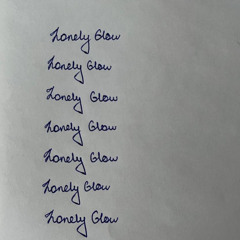 Lonely Glow
Lonely Glow
Lonely Glow
Lonely Glow
Lonely Glow
Lonely Glow
Lonely Glow